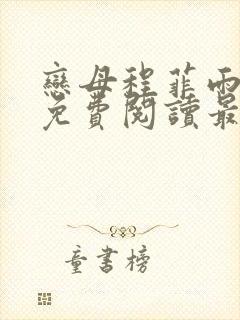 戀母程菲雨
免費閱讀最
童書榜